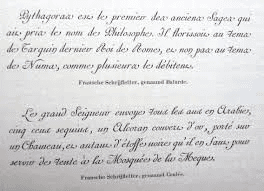 Pythagoras est le premier des anciens Sages qui
ait pris le nom de Philosophe. Il florissoit au tems
de Tarquin dernier Roi de Romes, et non pas au tems
de Numa, comme plusieurs le débitens.
Fransche Schrijfletter, genaamd Batarde.
Le grand Seigneur envoye tous les ans en Arabies,
cinq cens sequins, un Alcoran couvert d'or, porté sur
un Chameau, et autant d'étoffe noire qu'il en faut pour
servir de tente à la Mosquée de la Mecque.
Fransche Schrijfletter, genaamd Coulée.